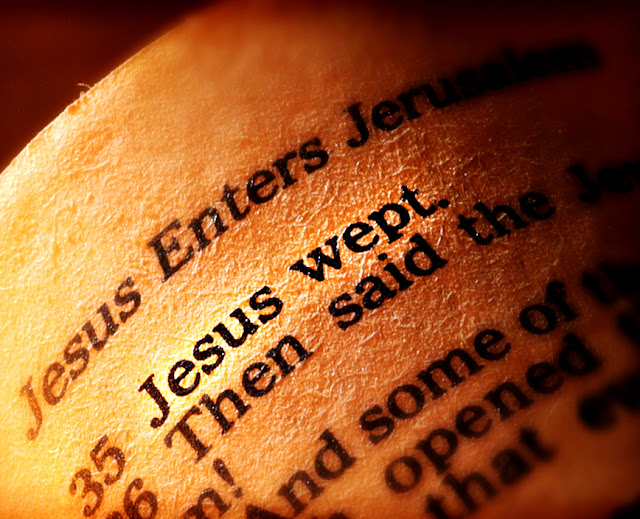 Jesus Enters Jerusalem
35 Jesus wept.
36 Then said the
m! And some of
opened
that